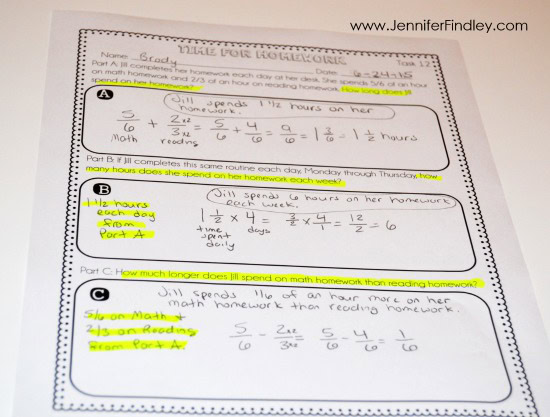 www.JenniferFindley.com
TIME FOR HOMEWORK
Name: Brody Date: 6-24-15 Task 12
Part A: Jill completes her homework each day at her desk. She spends 5/6 of an hour
on math homework and 2/3 of an hour on reading homework. How long does Jill
spend on her homework?
A
Jill spends 1 1/2 hours on her
homework.
5/6 + 2×2/3×2 = 5/6 + 4/6 = 9/6 = 1 3/6 = 1 1/2 hours
Math reading
Part B: If Jill completes this same routine each day, Monday through Thursday, how
many hours does she spend on her homework each week?
B
Jill spends 6 hours on her homework
each week.
1 1/2 hours
each day
from
Part A
1 1/2 × 4 = 3/2 × 4/1 = 12/2 = 6
time days
spent
daily
Part C: How much longer does Jill spend on math homework than reading homework?
C
Jill spends 1/6 of an hour more on her
math homework than reading homework.
5/6 on Math +
2/3 on Reading
from Part A.
5/6 - 2×2/3×2 = 5/6 - 4/6 = 1/6